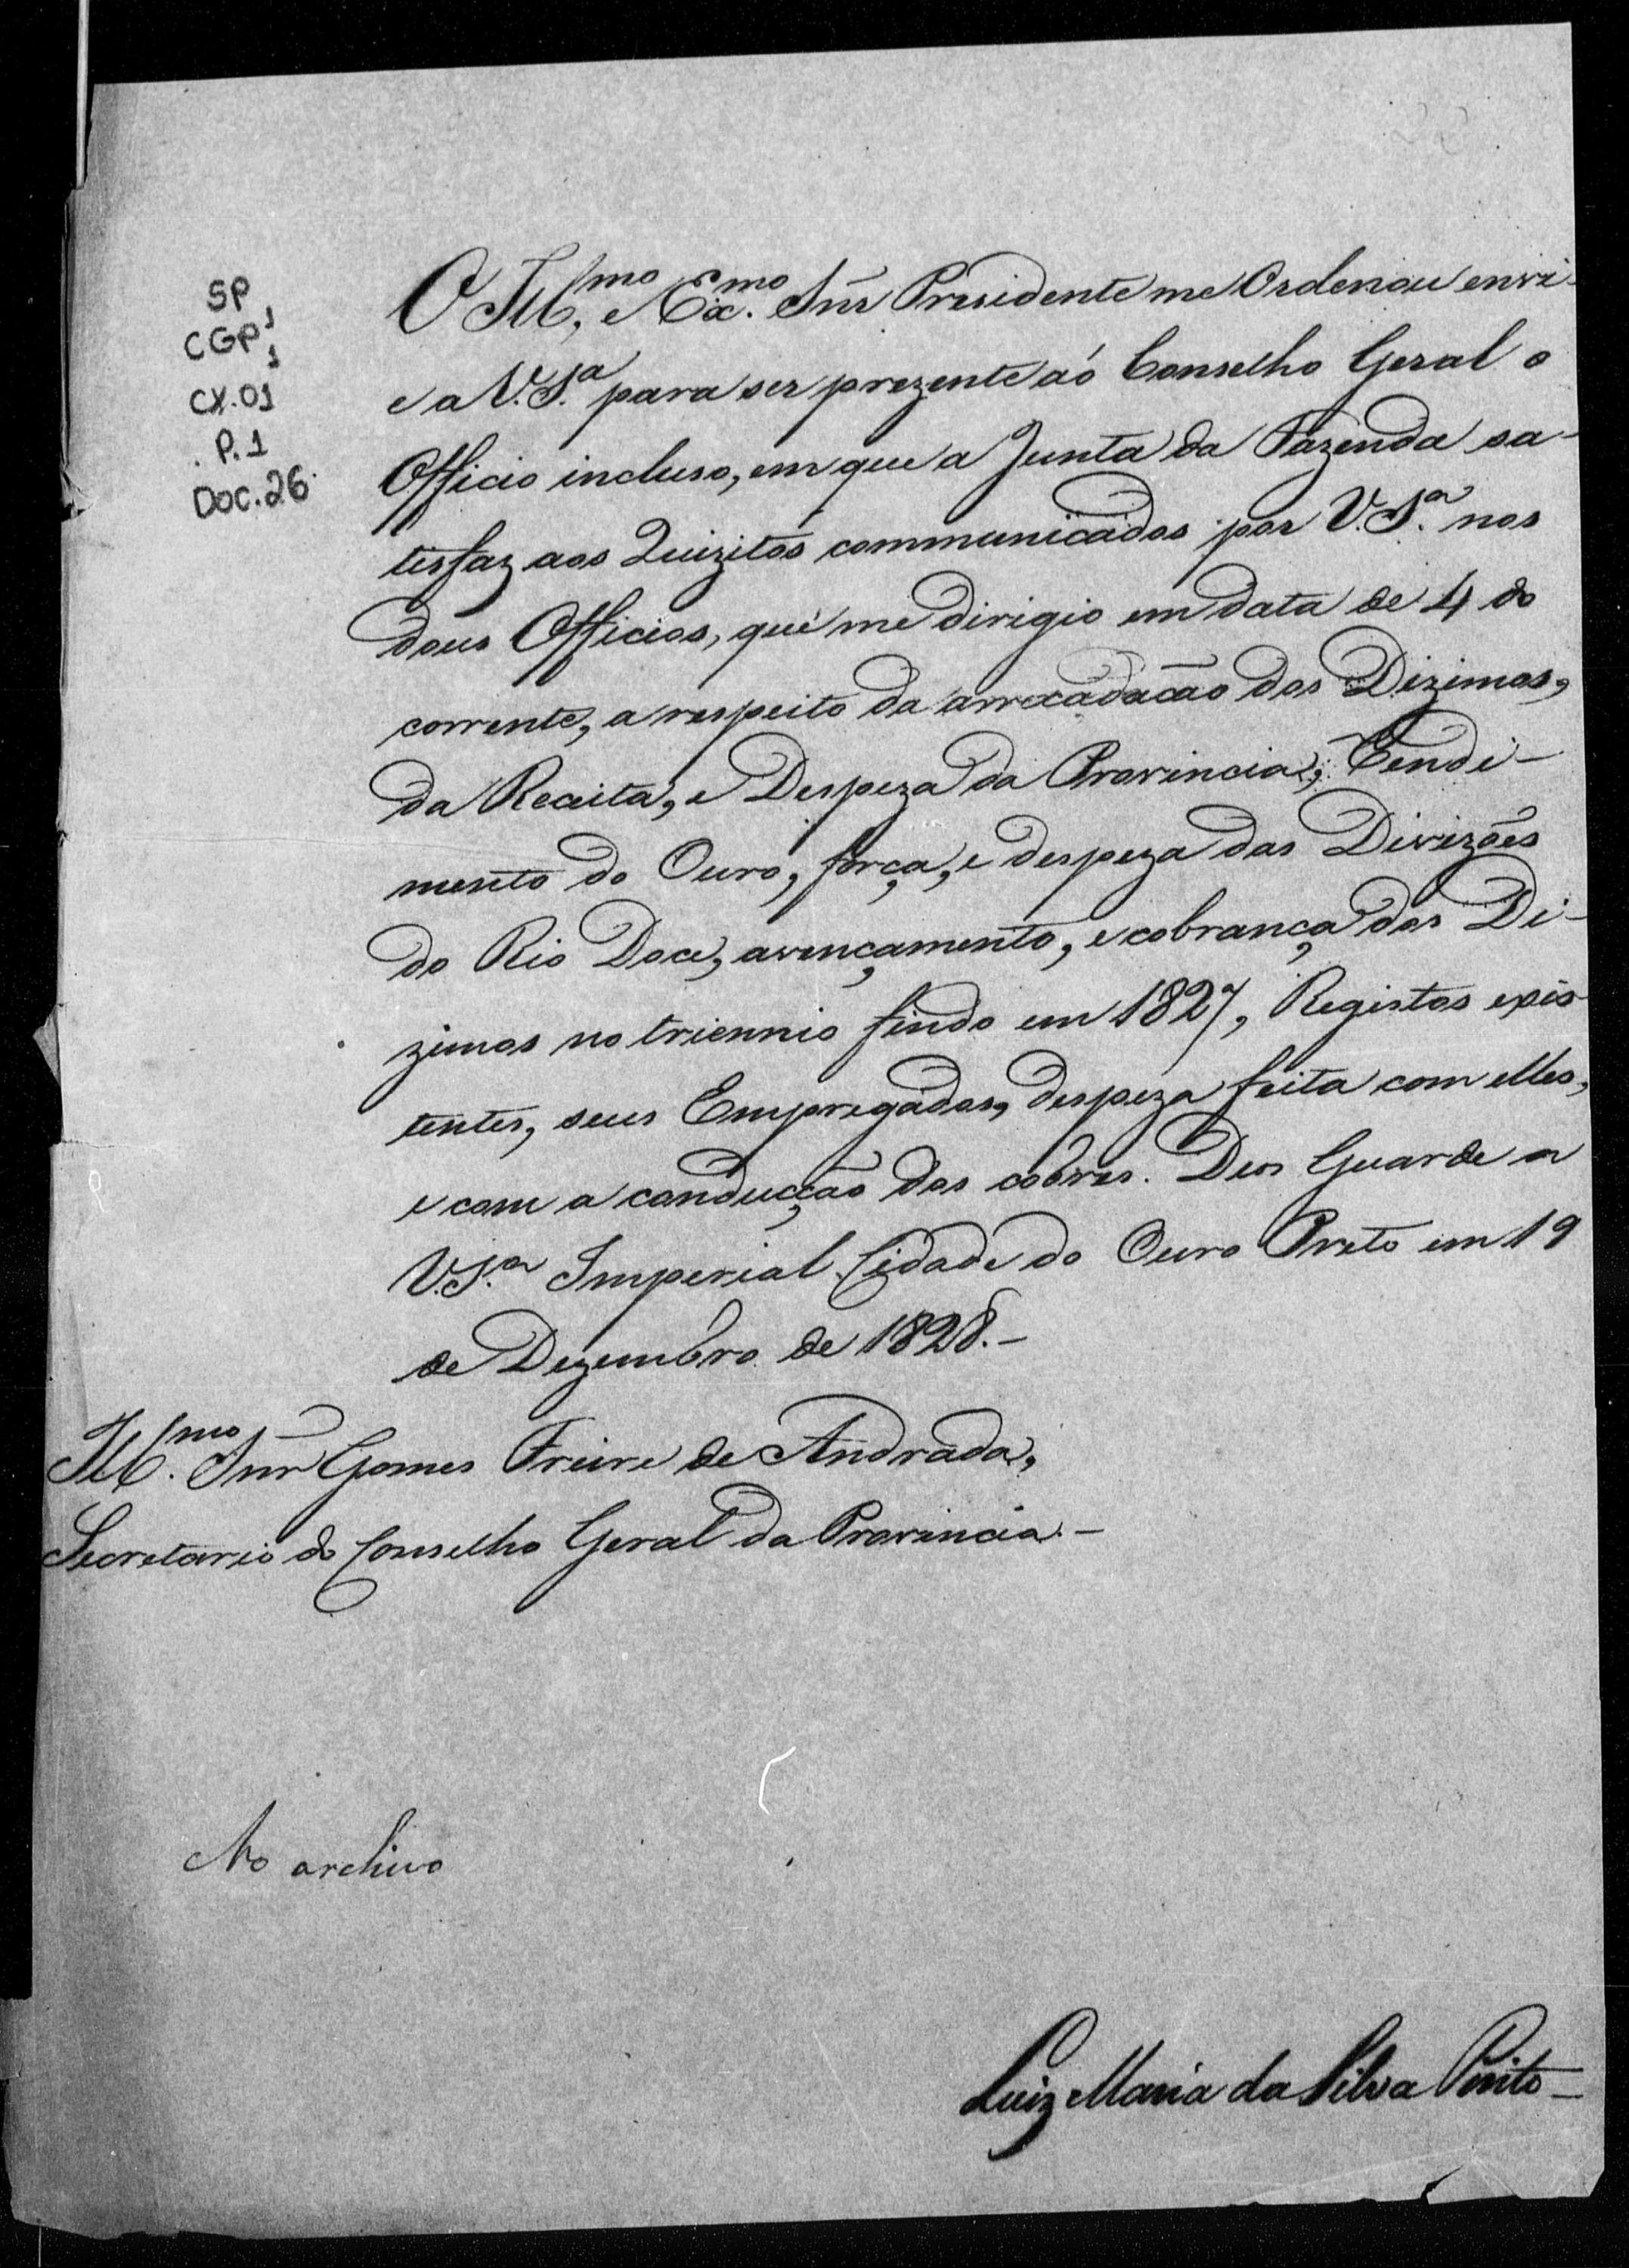 SP
CGP¹
1
CX.01
P.1
DOC.26
O Ill.mo, e Ex.mo Snr Presidente me Ordenou envi-
e a V.S.a para ser prezente áo Conselho Geral o
Officio incluso, em que a Junta da Fazenda sa-
tisfaz aos Quizitos communicados por V.S.a nos
dous Officios, que me dirigio em data de 4 do
corrente, a respeito da arrecadacão dos Dizimos,
da Receita, e Despeza da Provincia, Rendi-
mento do Ouro, força, e despeza das Divizões
do Rio Doce, avençamento, e cobrança dos Di-
zimos no triennio findo em 1827, Registos exis
tentes, seus Empregados, despeza feita com elles,
e com a conducção dos cobres. Deos Guarde a
V.S.a Imperial Cidade do Ouro Preto em 19
de Dezembro de 1828.-
Ill.mo Snr Gomes Freire de Andrada,
Secretario do Conselho Geral da Provincia.-
Ao archivo
Luiz Maria da Silva Pinto-